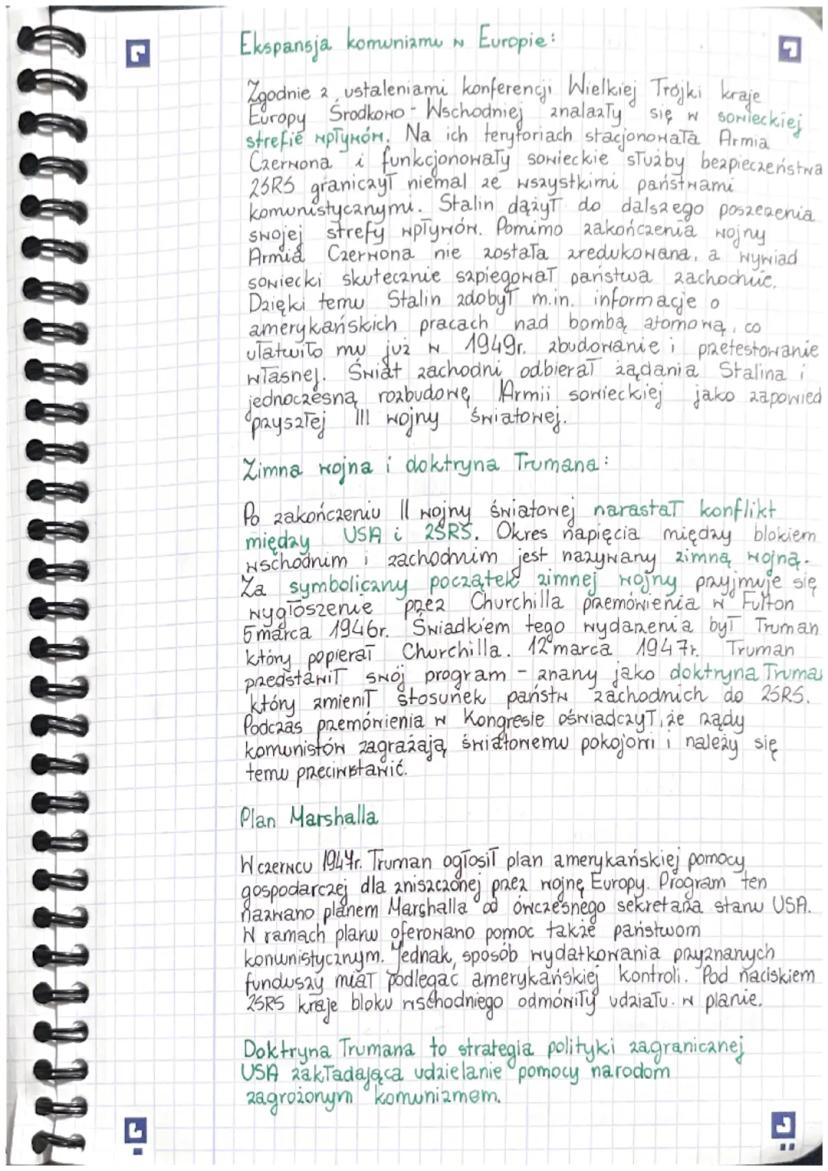 Ekspansja komunizmu w Europie:
Zgodnie z ustaleniami konferencji Wielkiej Trójki kraje
Europy Środkowo-Wschodniej znalazły się w sowieckiej
strefie wpływów. Na ich terytoriach stacjonowała Armia
Czerwona i funkcjonowały sowieckie służby bezpieczeństwa
ZSRS graniczył niemal ze wszystkimi państwami
komunistycznymi. Stalin dążył do dalszego poszerzenia
swojej strefy wpływów. Pomimo zakończenia wojny
Armia Czerwona nie została zredukowana, a wywiad
sowiecki skutecznie szpiegował państwa zachodnie.
Dzięki temu Stalin zdobył m.in. informacje o
amerykańskich pracach nad bombą atomową, co
ułatwiło mu już w 1949r. zbudowanie i przetestowanie
własnej. Świat zachodni odbierał żądania Stalina i
jednoczesną rozbudowę Armii sowieckiej jako zapowied
przyszłej III wojny światowej.
Zimna wojna i doktryna Trumana:
Po zakończeniu II wojny światowej narastał konflikt
między USA i ZSRS. Okres napięcia między blokiem
wschodnim i zachodnim jest nazywany zimną wojną.
Za symboliczny początek zimnej wojny przyjmuje się
wygłoszenie przez Churchilla przemówienia w Fulton
5 marca 1946r. Świadkiem tego wydarzenia był Truman
który popierał Churchilla. 12 marca 1947r. Truman
przedstawił swój program - znany jako doktryna Truma
który zmienił stosunek państw zachodnich do ZSRS.
Podczas przemówienia w Kongresie oświadczył, że rządy
komunistów zagrażają światowemu pokojowi i należy się
temu przeciwstawić.
Plan Marshalla
W czerwcu 1947r. Truman ogłosił plan amerykańskiej pomocy
gospodarczej dla zniszczonej przez wojnę Europy. Program ten
nazwano planem Marshalla od ówczesnego sekretarza stanu USA.
W ramach planu oferowano pomoc także państwom
komunistycznym. Jednak, sposób wydatkowania przyznanych
funduszy miał podlegać amerykańskiej kontroli. Pod naciskiem
ZSRS kraje bloku wschodniego odmówiły udziału w planie.
Doktryna Trumana to strategia polityki zagranicznej
USA zakładająca udzielanie pomocy narodom
zagrożonym komunizmem.